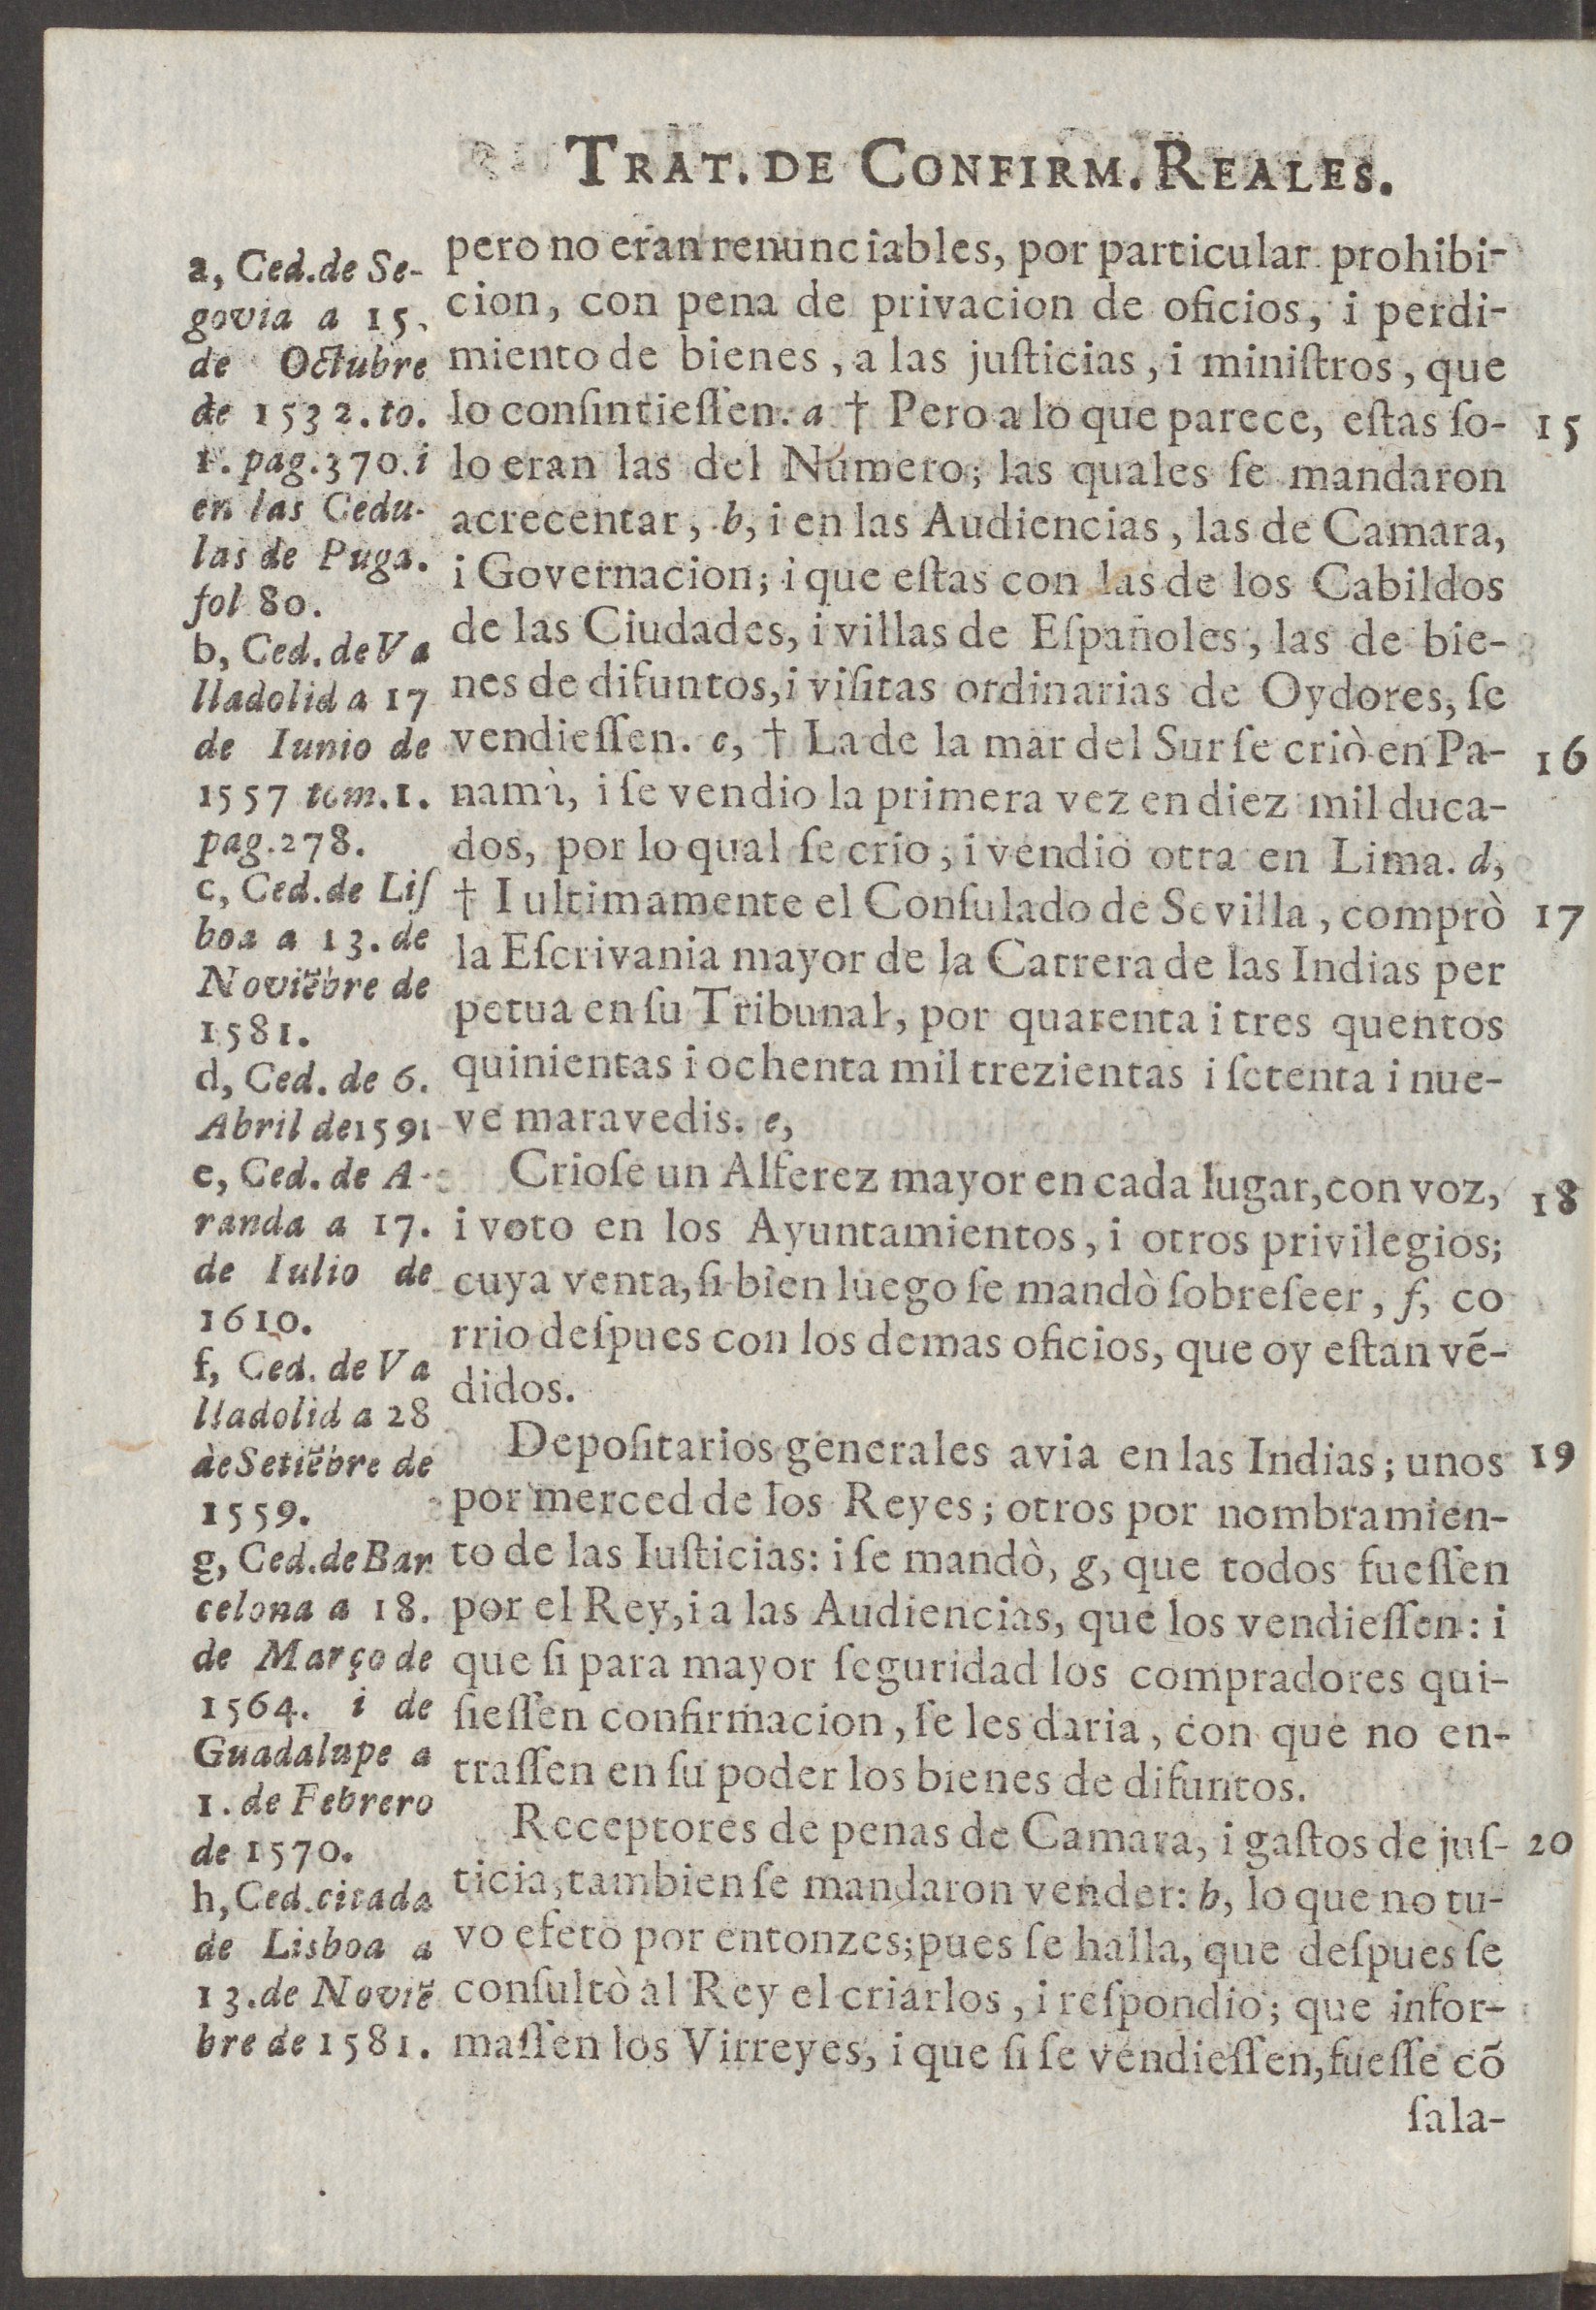 TRAT. DE CONFIRM. REALES.
a, Ced. de Se-
govia a 15.
de Octubre
de 1532. to.
1. pag. 370. i
en las Cedu-
las de Puga.
fol 80.
b, Ced. de Va
lladolid a 17
de Iunio de
1557 tom. 1.
pag. 278.
c, Ced. de Liſ
boa a 13. de
Noviẽbre de
1581.
d, Ced. de 6.
Abril de 1591
e, Ced. de A-
randa a 17.
de Iulio de
1610.
f, Ced. de Va
lladolid a 28
de Setiẽbre de
1559.
g, Ced. de Bar
celona a 18.
de Março de
1564. i de
Guadalupe a
1. de Febrero
de 1570.
h, Ced. citada
de Lisboa a
13. de Noviẽ
bre de 1581.
pero no eran renunciables, por particular prohibi-
cion, con pena de privacion de oficios, i perdi-
miento de bienes, a las juſticias, i miniſtros, que
lo conſintieſſen. a † Pero a lo que parece, eſtas ſo- 15
lo eran las del Número; las quales ſe mandaron
acrecentar, b, i en las Audiencias, las de Camara,
i Governacion; i que eſtas con las de los Cabildos
de las Ciudades, i villas de Eſpañoles, las de bie-
nes de difuntos, i viſitas ordinarias de Oydores, ſe
vendieſſen. c, † La de la mar del Sur ſe criò en Pa- 16
namà, i ſe vendio la primera vez en diez mil duca-
dos, por lo qual ſe crio, i vendio otra en Lima. d,
† I ultimamente el Conſulado de Sevilla, comprò 17
la Eſcrivania mayor de la Carrera de las Indias per
petua en ſu Tribunal, por quarenta i tres quentos
quinientas i ochenta mil trezientas i ſetenta i nue-
ve maravedis. e,
Crioſe un Alferez mayor en cada lugar, con voz, 18
i voto en los Ayuntamientos, i otros privilegios;
cuya venta, ſi bien luego ſe mandò ſobreſeer, f, co
rrio deſpues con los demas oficios, que oy eſtan vẽ-
didos.
Depoſitarios generales avia en las Indias; unos 19
por merced de los Reyes; otros por nombramien-
to de las Iuſticias: i ſe mandò, g, que todos fueſſen
por el Rey, i a las Audiencias, que los vendieſſen: i
que ſi para mayor ſeguridad los compradores qui-
ſieſſen confirmacion, ſe les daria, con que no en-
traſſen en ſu poder los bienes de difuntos.
Receptores de penas de Camara, i gaſtos de juſ- 20
ticia, tambien ſe mandaron vender: h, lo que no tu-
vo efeto por entonzes; pues ſe halla, que deſpues ſe
conſultò al Rey el criarlos, i reſpondio; que infor-
maſſen los Virreyes, i que ſi ſe vendieſſen, fueſſe cõ
ſala-